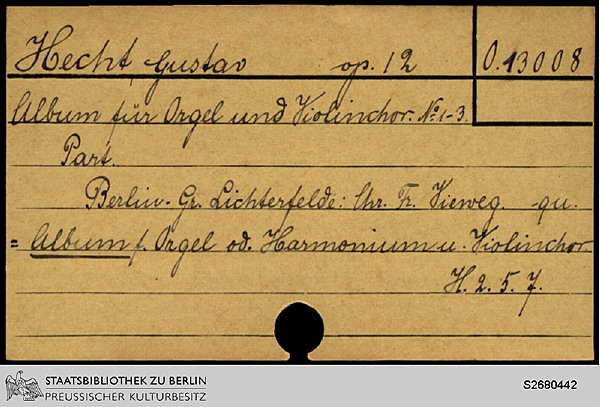 Hecht, Gustav op. 12 O. 13008
Album für Orgel und Violinchor. No 1-3.
Part.
Berlin-Gr. Lichterfelde: Chr. Fr. Vieweg. qu.
= Album f. Orgel od. Harmonium u. Violinchor
H. 2. 5. 7.
STAATSBIBLIOTHEK ZU BERLIN
PREUSSISCHER KULTURBESITZ
S2680442